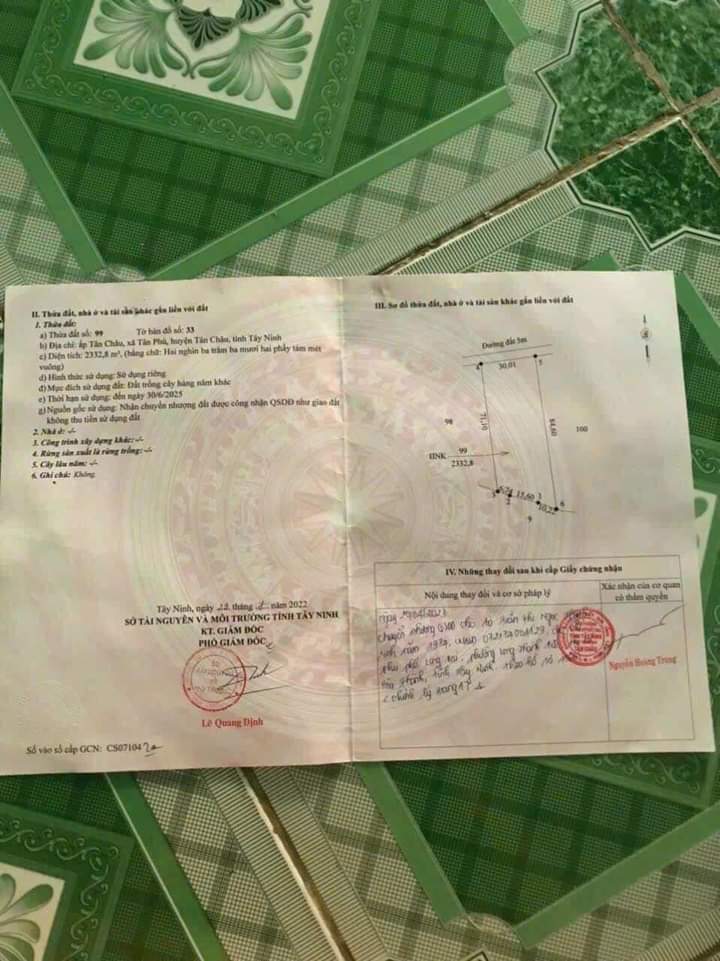 II. Thửa đất, nhà ở và tài sản khác gắn liền với đất
1. Thửa đất:
a) Thửa đất số: 99 Tờ bản đồ số: 33
b) Địa chỉ: ấp Tân Châu, xã Tân Phú, huyện Tân Châu, tỉnh Tây Ninh
c) Diện tích: 2332,8 m², (bằng chữ: Hai nghìn ba trăm ba mươi hai phẩy tám mét
vuông)
d) Hình thức sử dụng: Sử dụng riêng
đ) Mục đích sử dụng đất: Đất trồng cây hàng năm khác
e) Thời hạn sử dụng: đến ngày 30/6/2025
g) Nguồn gốc sử dụng: Nhận chuyển nhượng đất được công nhận QSDĐ như giao đất
không thu tiền sử dụng đất
2. Nhà ở: -/-
3. Công trình xây dựng khác: -/-
4. Rừng sản xuất là rừng trồng: -/-
5. Cây lâu năm: -/-
6. Ghi chú: Không.
Tây Ninh, ngày tháng năm 2022
SỞ TÀI NGUYÊN VÀ MÔI TRƯỜNG TỈNH TÂY NINH
KT. GIÁM ĐỐC
PHÓ GIÁM ĐỐC
Lê Quang Định
Số vào sổ cấp GCN: CS07104
III. Sơ đồ thửa đất, nhà ở và tài sản khác gắn liền với đất
Đường đất 5m
4
30,01
5
98
71,10
84,60
100
HNK
99
2332,8
3
2
15,60
1
10,22
6
9
IV. Những thay đổi sau khi cấp Giấy chứng nhận
Nội dung thay đổi và cơ sở pháp lý
Xác nhận của cơ quan
có thẩm quyền
Ngày
chuyển nhượng QSDĐ cho bà Trần Thị Ngọc
sinh năm
khu phố Long phường Long Thành
tỉnh Tây Ninh, theo hồ sơ số
Nguyễn Hoàng Trung